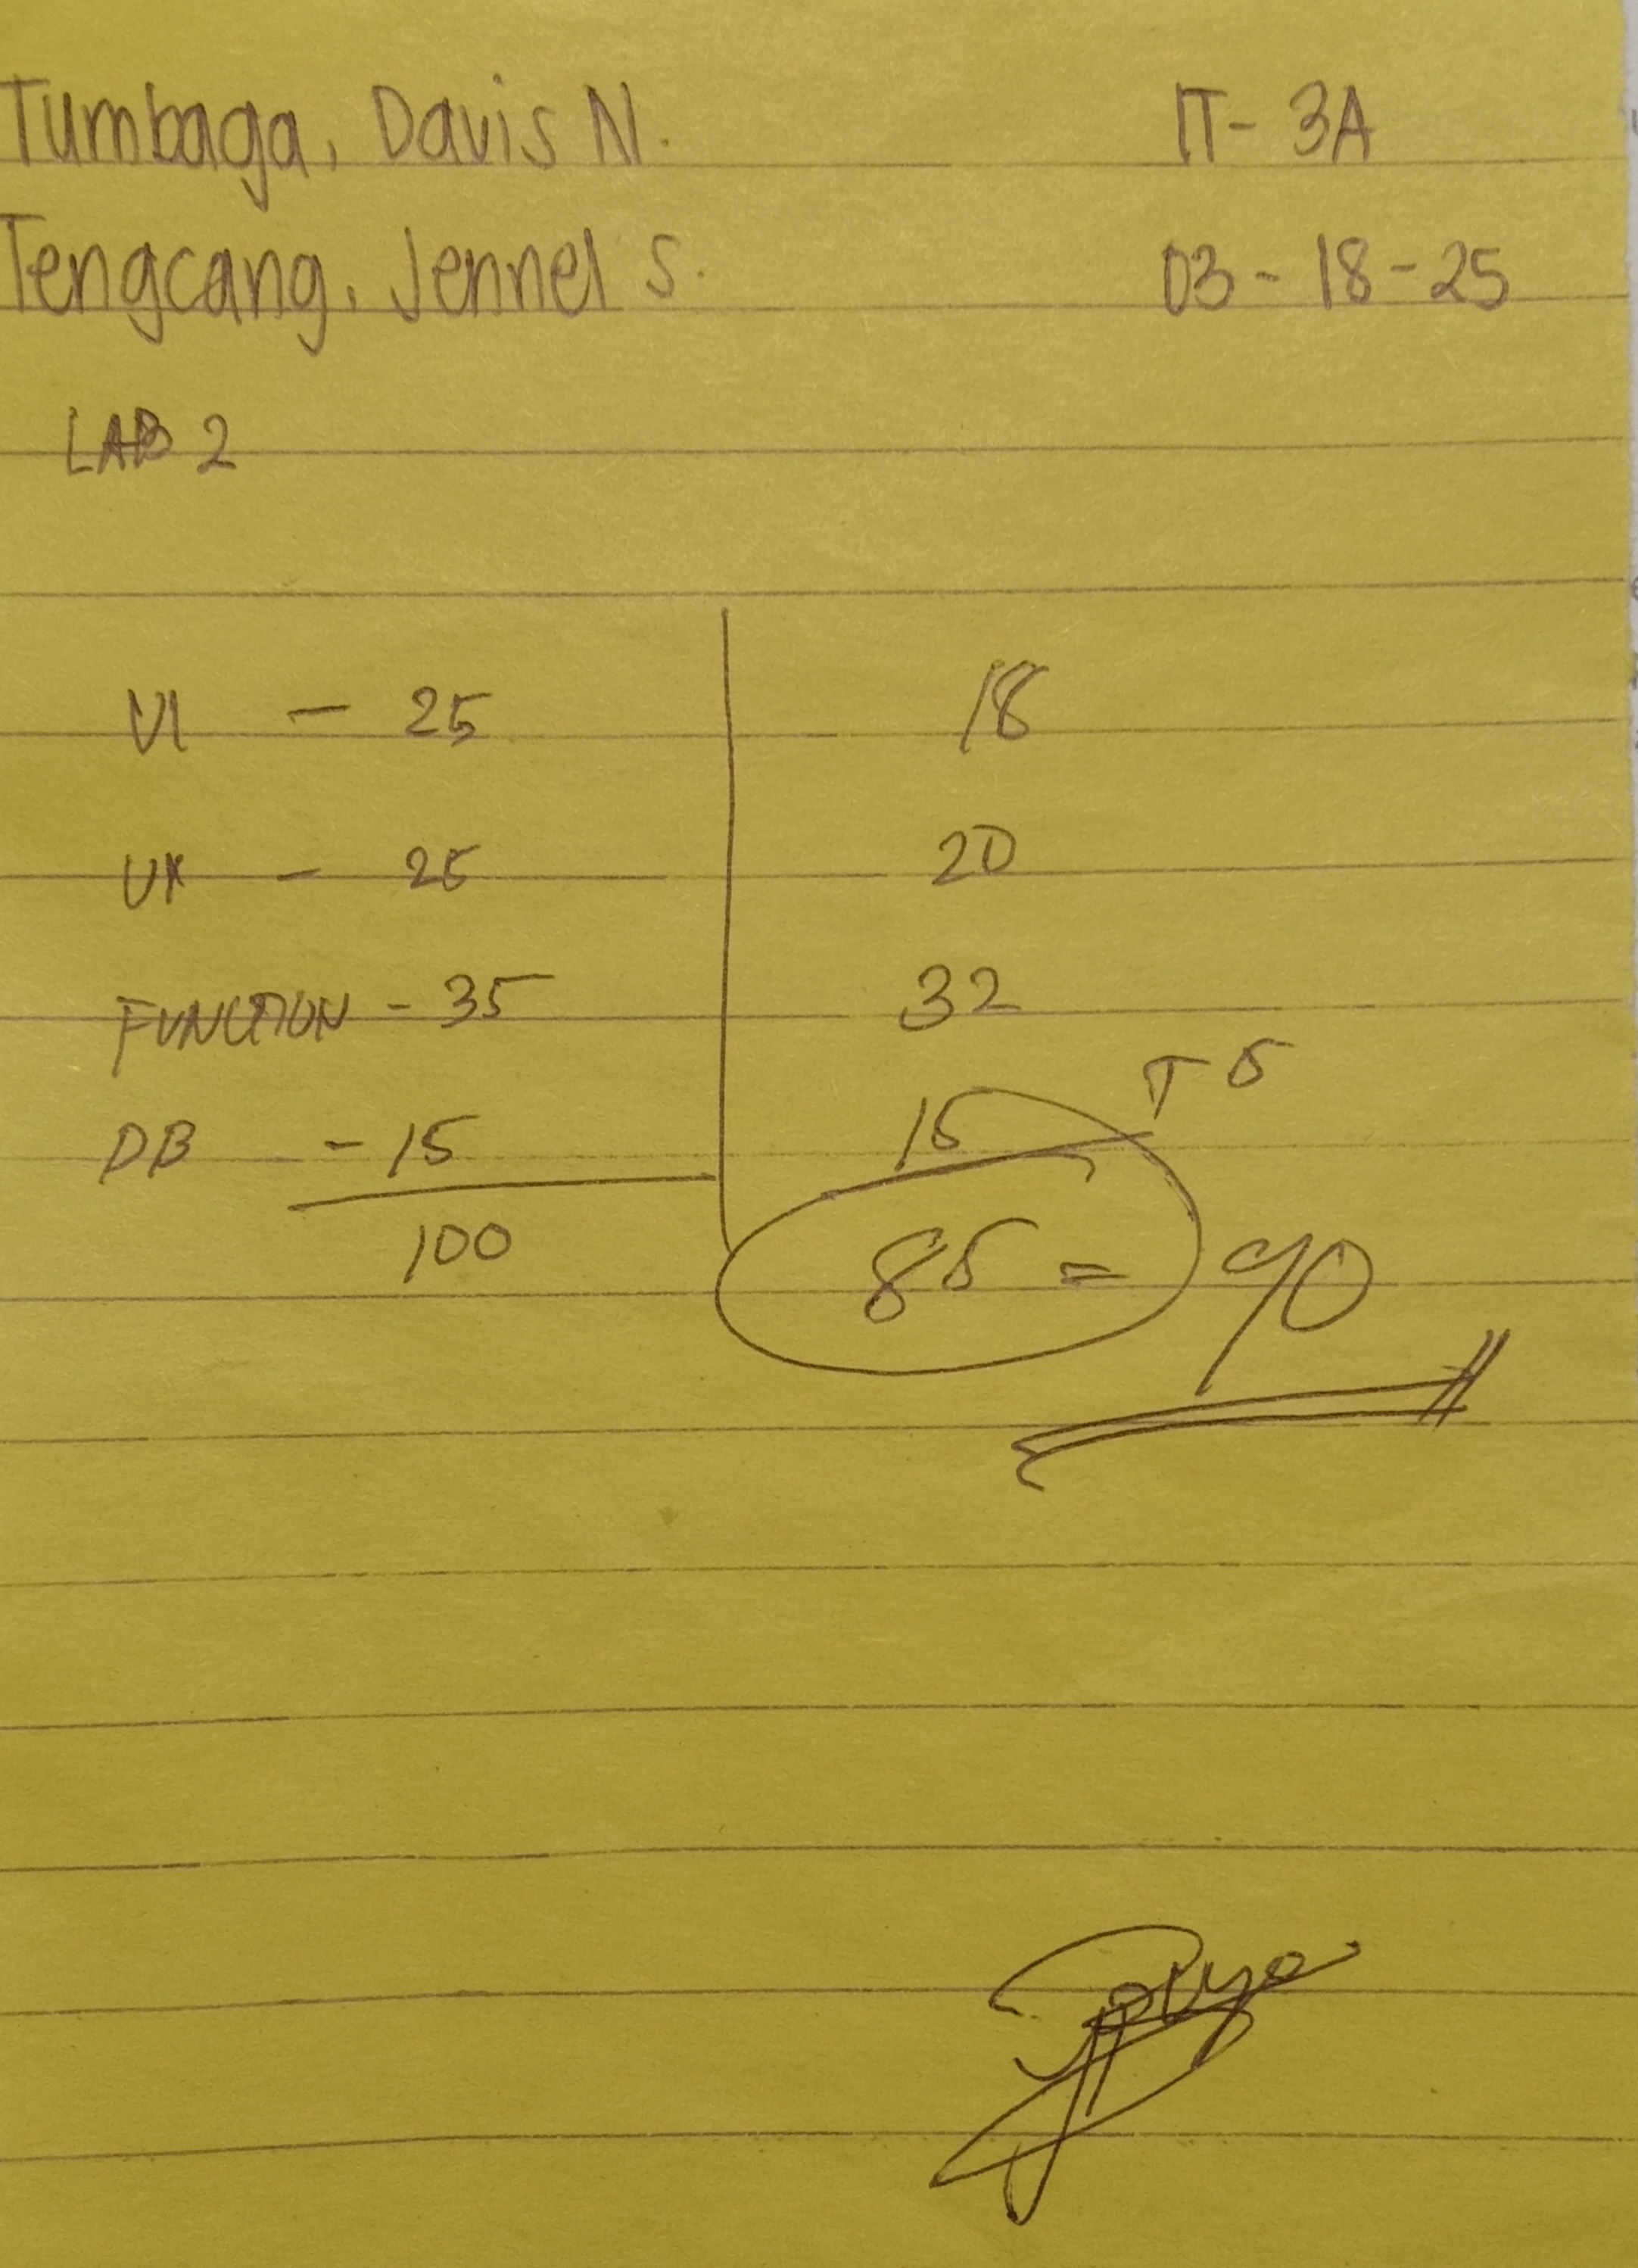 Tumbaga, Davis N. IT- 3A
Tengcang, Jennel S. 03-18-25
LAB 2
UI - 25 18
UX - 25 20
FUNCTION - 35 32
DB - 15 15 T 5
100 85 = 90